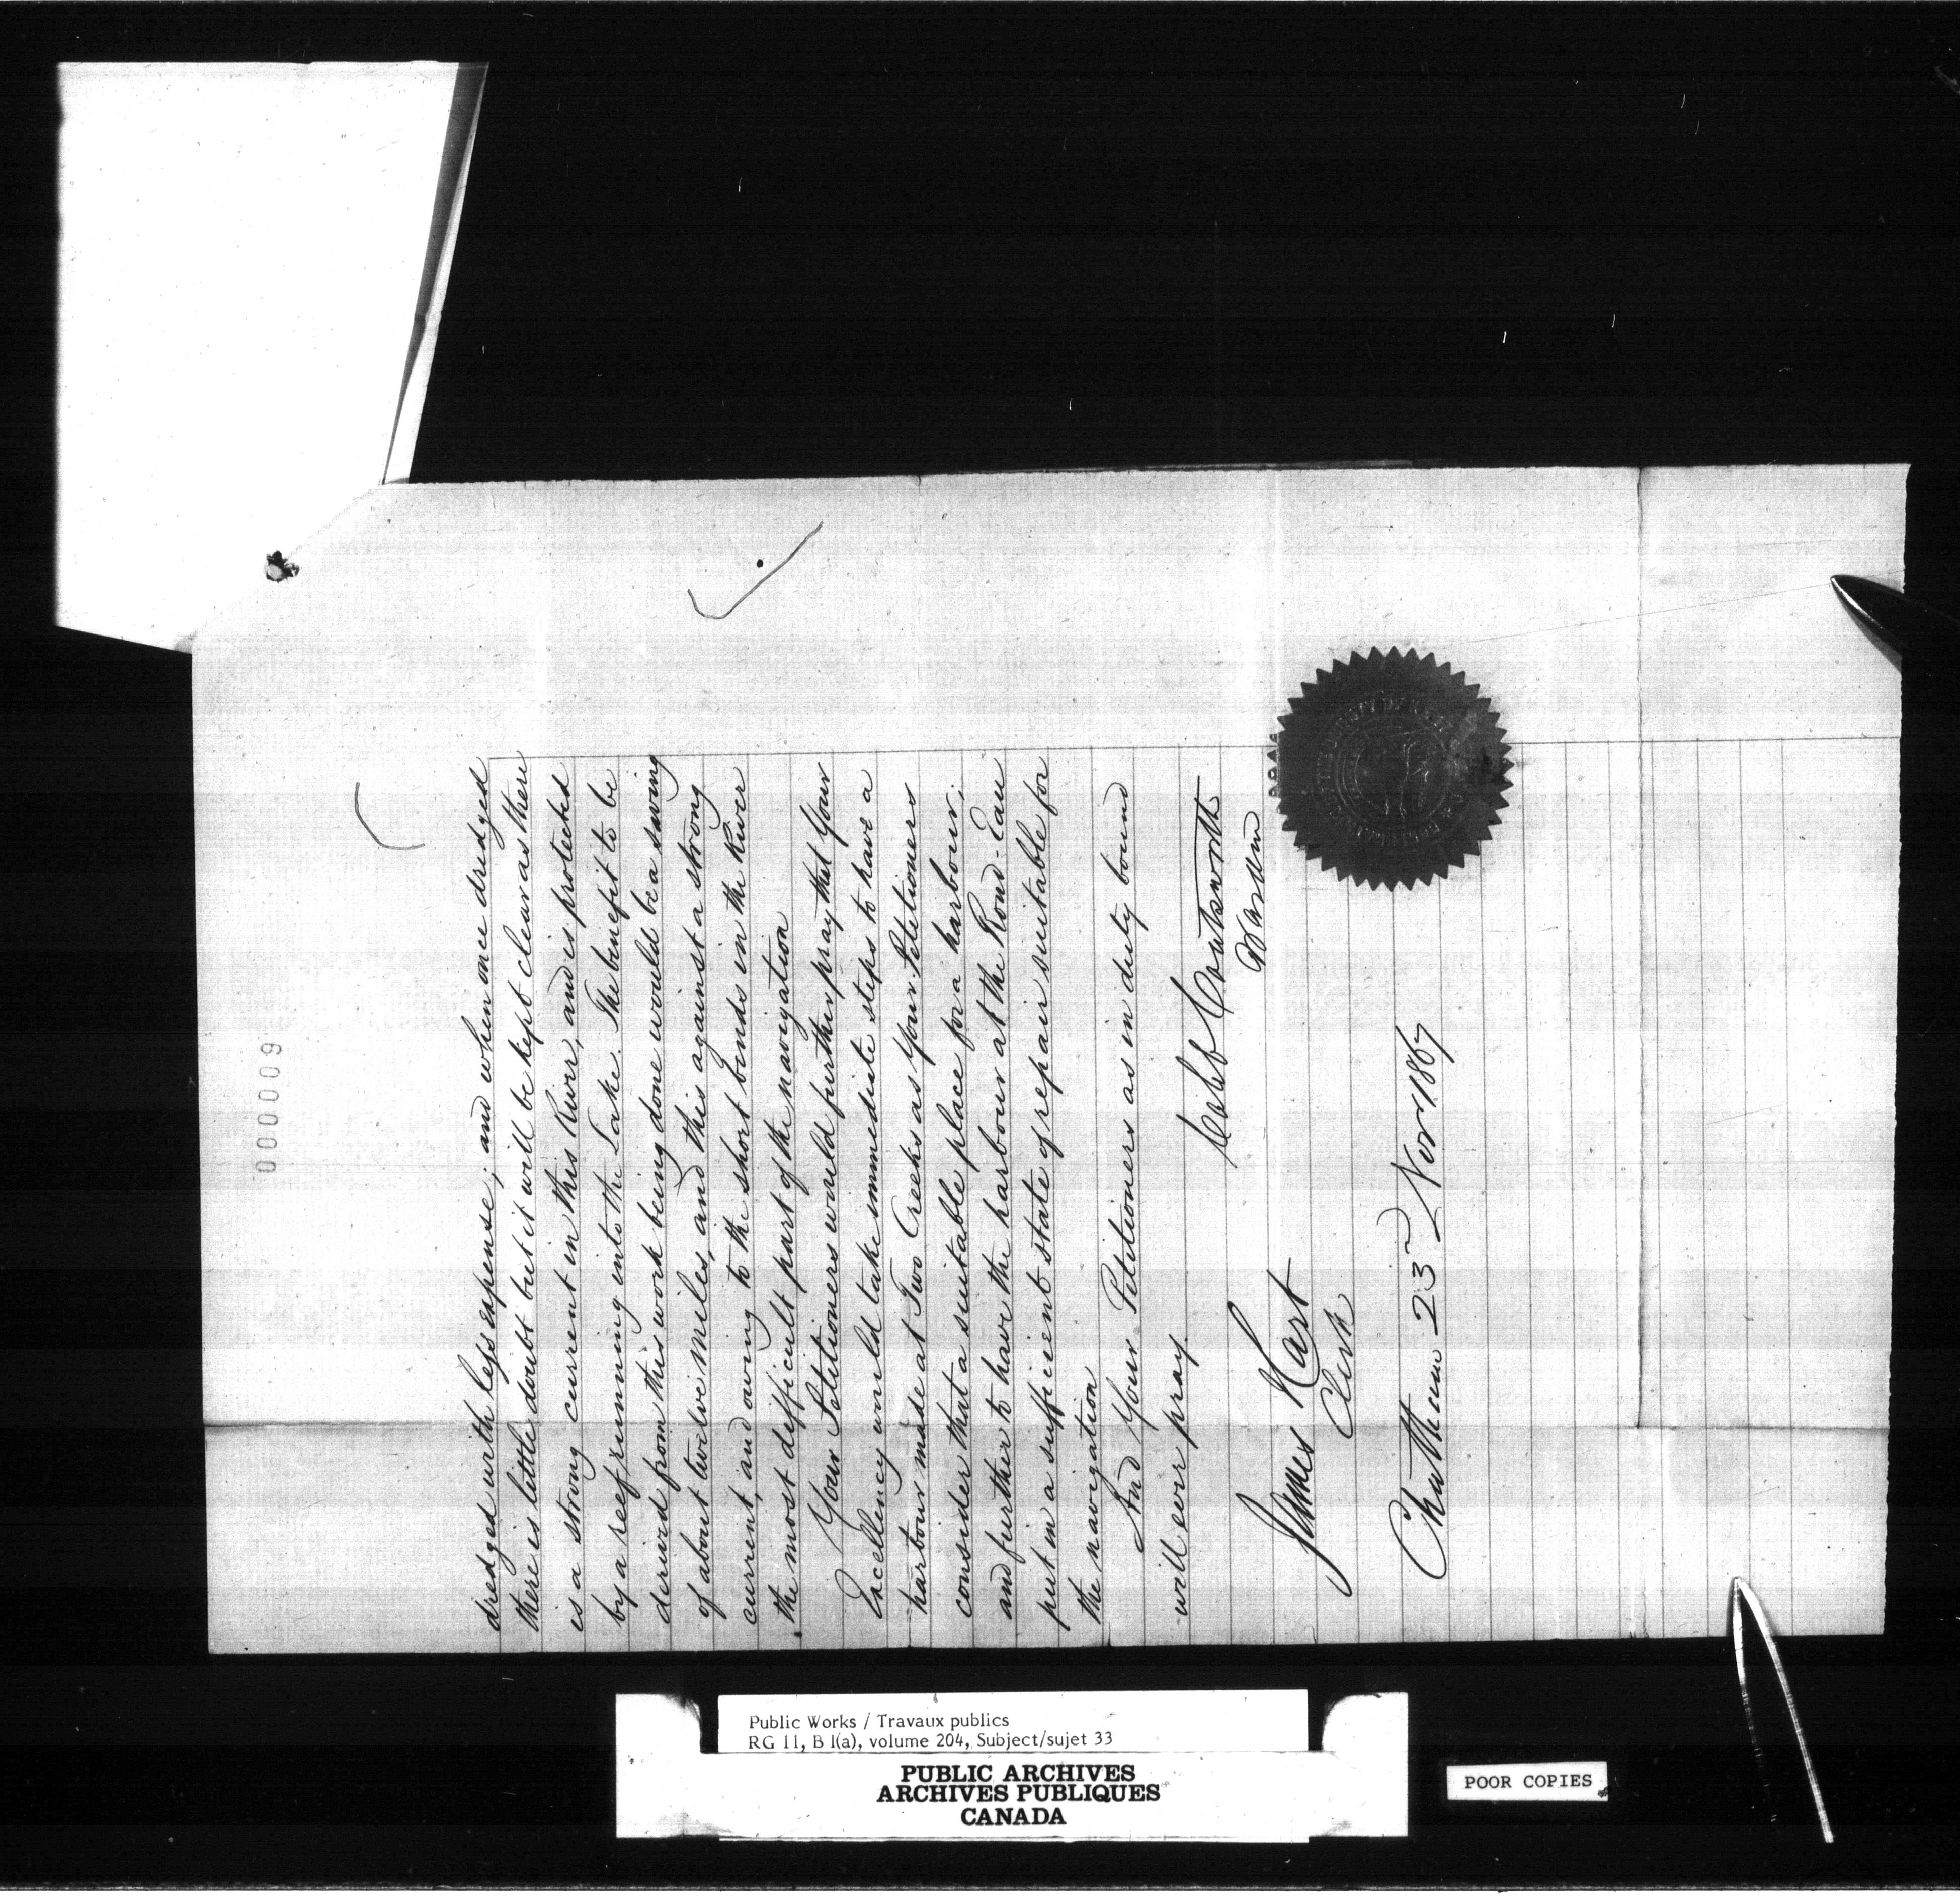 000009
dredged with less expense; and when once dredged
there is little doubt but it will be kept clear as there
is a strong current in this River, and is protected
by a reef running into the Lake. The benefit to be
derived from this work being done would be a saving
of about twelve miles, and this against a strong
current, and owing to the short bends in the River
the most difficult part of the navigation
Your Petitioners would further pray that Your
Excellency would take immediate steps to have a
harbour made at Two Creeks as Your Petitioners
consider that a suitable place for a harbour;
and further to have the harbour at the Rond-Eau
put in a sufficient state of repair suitable for
the navigation
And Your Petitioners as in duty bound
will ever pray.
Caleb Coatsworth
Warden
James Hart
Clerk
Chatham 23 Nov 1867
Public Works / Travaux publics
RG 11, B 1(a), volume 204, Subject/sujet 33
PUBLIC ARCHIVES
ARCHIVES PUBLIQUES
CANADA
POOR COPIES